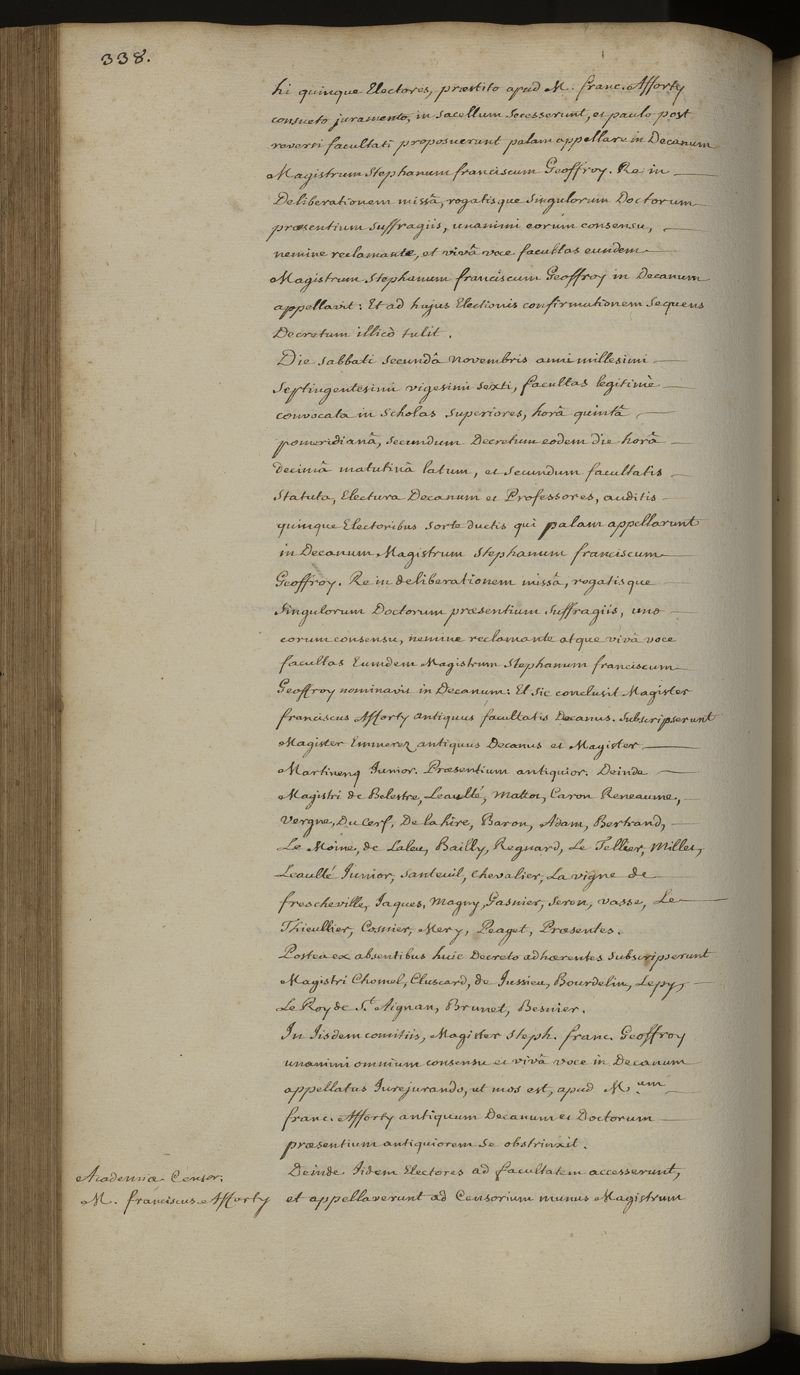 338.
hi quinque Electores, præstito apud M. franc. Afforty
consueto juramento, in Sacellum Secesserunt, et paulo post
reversi facultati proposuerunt palam appellare in Decanum
Magistrum Stephanum franciscum Geoffroy. Re in
Deliberationem missâ, rogatisque Singulorum Doctorum
præsentium Suffragiis, unanimi eorum consensu,
nemine reclamante, et vivâ voce facultas eundem
Magistrum Stephanum franciscum Geoffroy in Decanum
appellavit : Et ad hujus Electionis confirmationem Sequens
Decretum illicò tulit.
Die Sabbati Secundâ novembris anni millesimi
Septingentesimi vigesimi Sexti, facultas legitimè
convocata in Scholas Superiores, horâ quintâ
pomeridianâ, Secundum Decretum eodem die horâ
decimâ matutinâ latum, et Secundum facultatis
Statuta, Electura Decanum et Professores, auditis
quinque Electoribus Sorte ductis qui palam appellarunt
in Decanum Magistrum Stephanum franciscum
Geoffroy. Re in deliberationem missâ, rogatisque
Singulorum Doctorum præsentium Suffragiis, uno
eorum consensu, nemine reclamante atque vivâ voce
facultas Eumdem Magistrum Stephanum franciscum
Geoffroy nominavit in Decanum : Et Sic conclusit Magister
franciscus Afforty antiquus facultatis Decanus. Subscripserunt
Magister Emmerez antiquus Decanus et Magister
Martinenq Junior. Præsentium antiquior. Deinde
Magistri de Belestre, Leaulté, Mattot, Caron Reneaume,
Vergne, Du Cerf, De la hire, Baron, Adam, Bertrand,
Le Moine, de Laleu, Bailly, Regnard, Le Tellier, Millet,
Leaulté Junior, Santeuil, Chevalier, La vigne de
frescheville, Jaques, Magny, Gasnier, Seron, Vasse, Le
Thieullier, Cosnier, Mery, Peaget, Præsentes.
Postea ex absentibus huic Decreto adhærentes Subscripserunt
Magistri Chomel, Cluscard, de Jussieu, Bourdelin, Lepy,
Le Roy de St. Aignan, Brunet, Besnier.
In Iisdem comitiis, Magister Steph. franc. Geoffroy
unanimi omnium consensu et vivâ voce in Decanum
appellatus Jurejurando, ut mos est, apud M.um
franc. Afforty antiquum Decanum et Doctorum
præsentium antiquiorem Se obstrinxit.
Academiæ Censor.
M. franciscus Afforty
Deinde Iidem Electores ad facultatem accesserunt,
et appellaverunt ad Censorium munus Magistrum